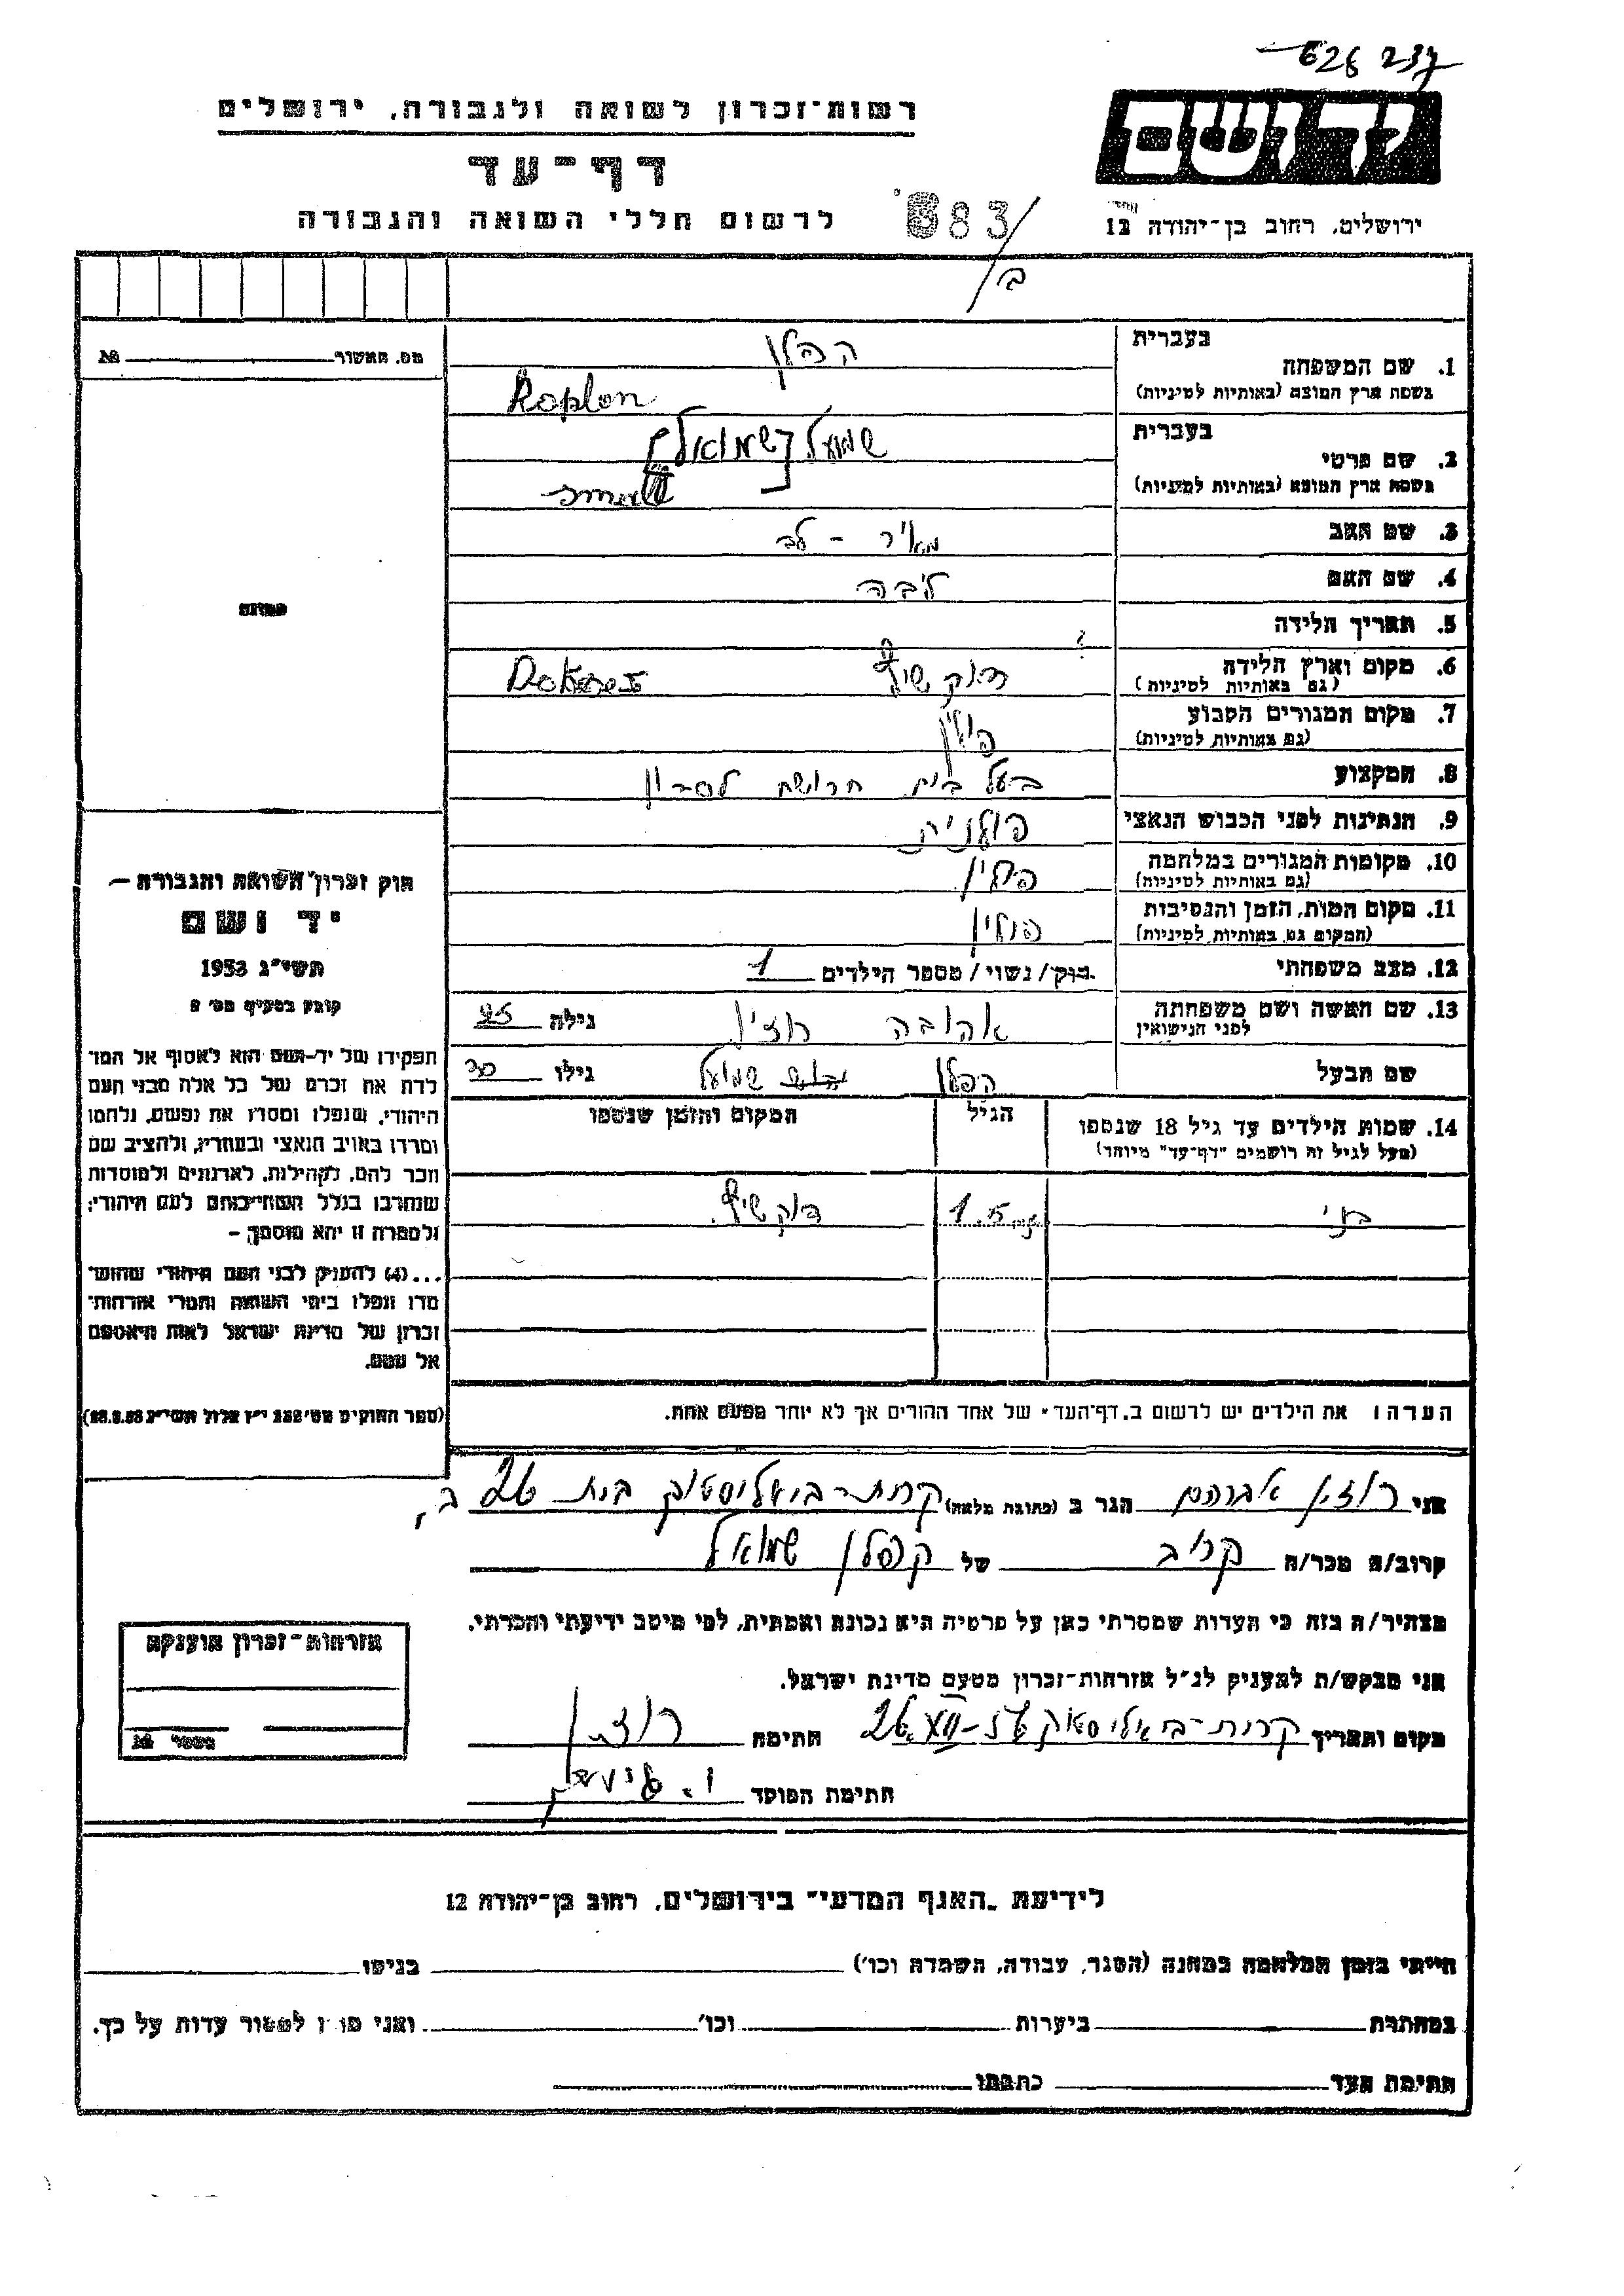 628 237
יד ושם
רשות-זכרון לשואה ולגבורה, ירושלים
דף-עד
לרשום חללי השואה והגבורה
ירושלים, רחוב בן-יהודה 12
383/ב
מס. האשור №
1. שם המשפחה
בעברית
הפלן
בשפת ארץ המוצא (באותיות לטיניות)
Koplon
2. שם פרטי
בעברית
שמעל [שמואל]
בשפת ארץ המוצא (באותיות לטיניות)
3. שם האב
מאיר - לב
4. שם האם
ליבה
תמונה
5. תאריך הלידה
?
6. מקום וארץ הלידה
(גם באותיות לטיניות)
דוקשיץ
7. מקום המגורים הקבוע
(גם באותיות לטיניות)
פולין
8. המקצוע
בעל בית חרושת לסבון
9. הנתינות לפני הכבוש הנאצי
פולניה
10. מקומות המגורים במלחמה
(גם באותיות לטיניות)
פולין
11. מקום המות, הזמן והנסיבות
(המקום גם באותיות לטיניות)
פולין
12. מצב משפחתי
רווק/ נשוי/ מספר הילדים 1
13. שם האשה ושם משפחתה
לפני הנישואין
אהובה רוזין
גילה 25
שם הבעל
הפלן שמועל
גילו 30
14. שמות הילדים עד גיל 18 שנספו
(מעל לגיל זה רושמים "דף-עד" מיוחד)
הגיל
המקום והזמן שנספו
בני
1.5
דוקשיץ.
הערה: את הילדים יש לרשום ב"דף-העד" של אחד ההורים אך לא יותר מפעם אחת.
חוק זכרון השואה והגבורה –
יד ושם
תשי"ג 1953
קובע בסעיף מס' 2
תפקידו של יד-ושם הוא לאסוף אל המו־
לדת את זכרם של כל אלה מבני העם
היהודי, שנפלו ומסרו את נפשם, נלחמו
ומרדו באויב הנאצי ובעוזריו, ולהציב שם
וזכר להם, לקהילות, לארגונים ולמוסדות
שנחרבו בגלל השתייכותם לעם היהודי;
ולמטרה זו יהא מוסמך –
...(4) להעניק לבני העם היהודי שהוש־
מדו ונפלו בימי השואה והמרי אזרחות־
זכרון של מדינת ישראל לאות היאספם
אל עמם.
(ספר החוקים מס' 132 י"ז אלול תשי"ג 28.8.53)
אני רוזין אברהם הגר ב (כתובת מלאה) קרית-ביאליסטוק בית 26 ב,
קרוב/ה מכר/ה קרוב של קפלן שמואל
מצהיר/ה בזה כי העדות שמסרתי כאן על פרטיה היא נכונה ואמתית, לפי מיטב ידיעתי והכרתי.
אני מבקש/ת להעניק לנ"ל אזרחות-זכרון מטעם מדינת ישראל.
מקום ותאריך קרית-ביאליסטוק
חתימה רוזין
חתימת הפוקד
אזרחות-זכרון הוענקה
מספר №
לידיעת "האגף המדעי" בירושלים, רחוב בן-יהודה 12
הייתי בזמן המלחמה במחנה (הסגר, עבודה, השמדה וכו') בגיטו
במחתרת ביערות וכו' ואני מוכן למסור עדות על כך.
חתימת העד כתבתו